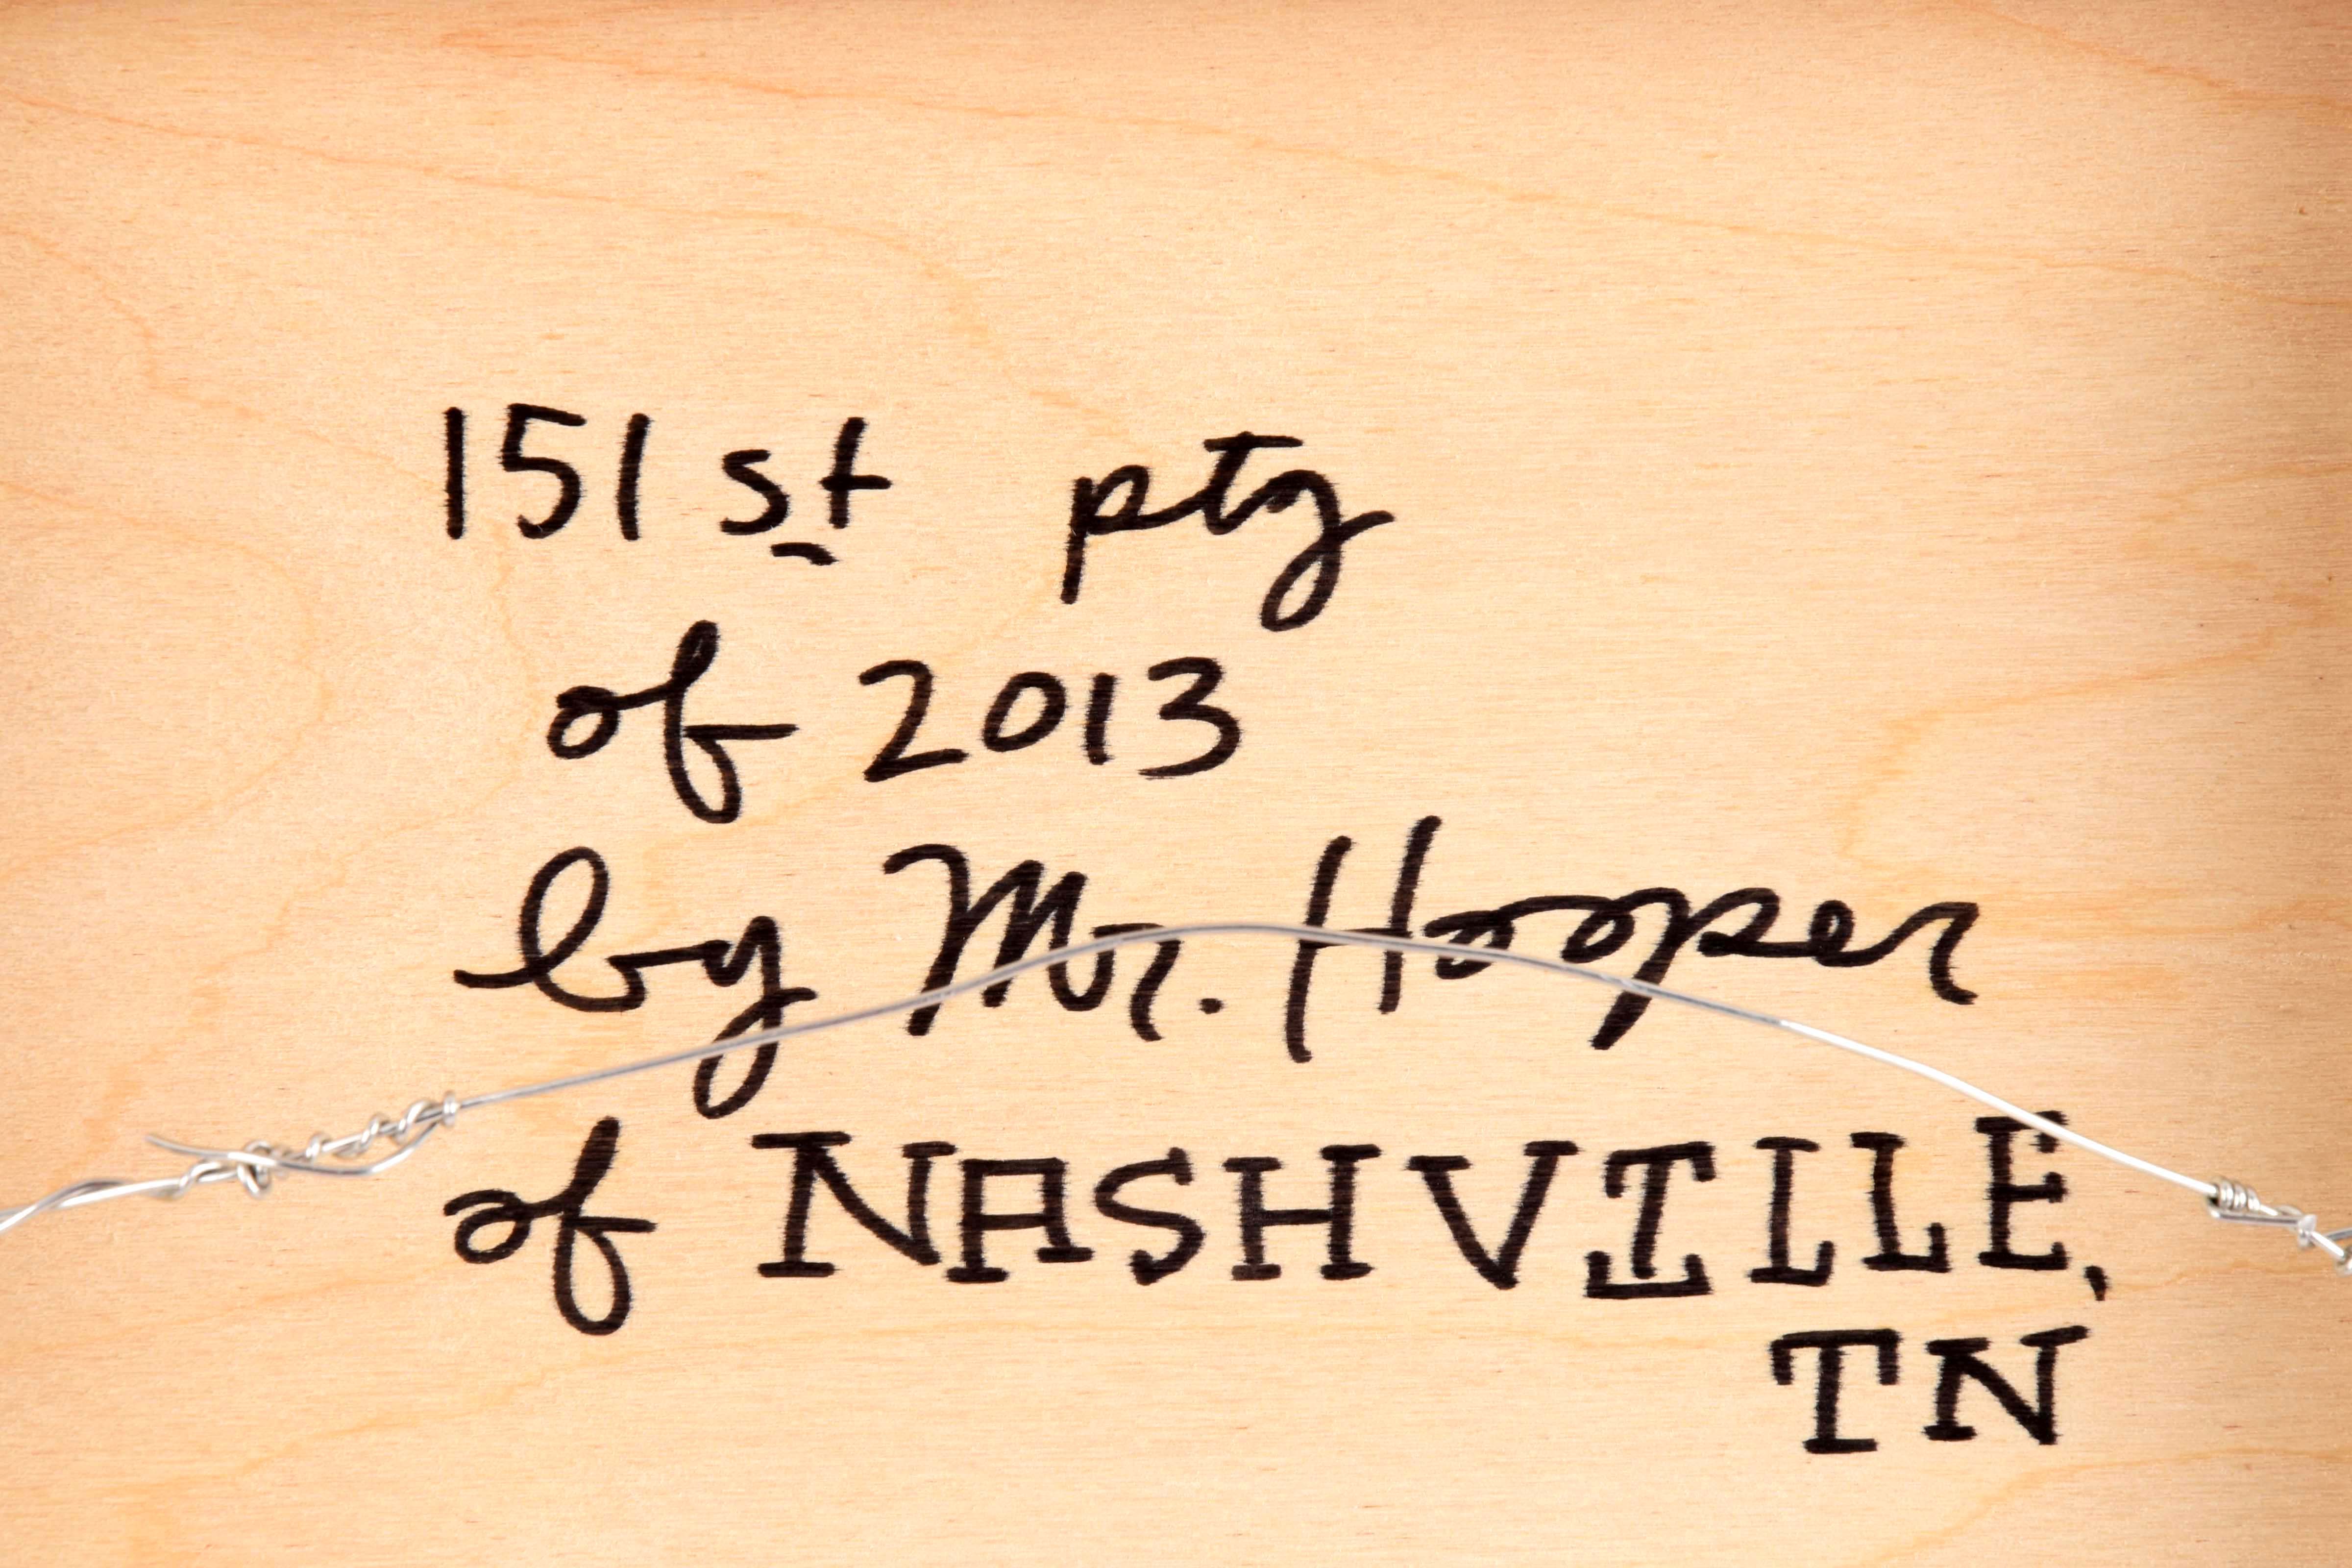 151st ptg
of 2013
by Mr. Hooper
of NASHVILLE,
TN